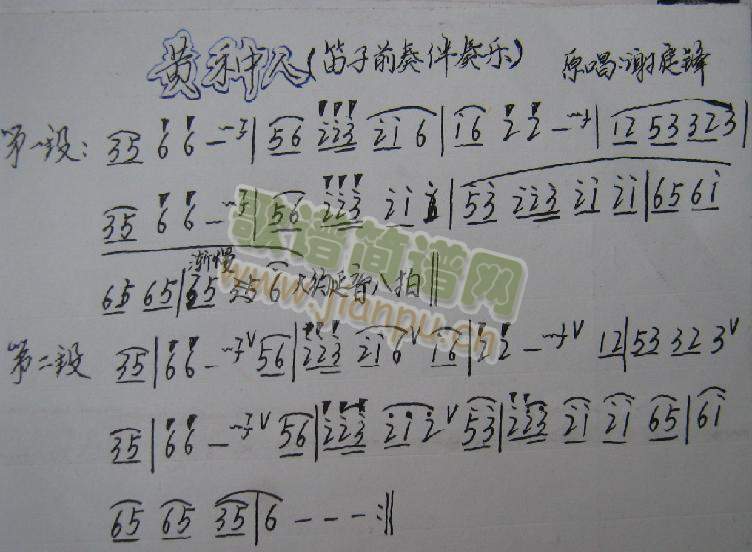 黄种人(笛子前奏伴奏乐) 原唱:谢庭锋
第一段: 35 6 6 — | 56 223 21 6 | 16 2 2 — | 12 53 323 |
35 6 6 — | 56 223 21 | 53 223 21 21 | 65 61
65 65 | 35 356 大约延音八拍 ||
渐慢
第二段 35 | 66 — V 56 | 223 216 V 16 | 22 — V 12 | 53 32 3 V
35 | 66 — V 56 | 223 212 V 53 | 223 21 21 65 | 61
65 65 35 | 6 - - - :||
歌谱简谱网
www.jianpu.cn